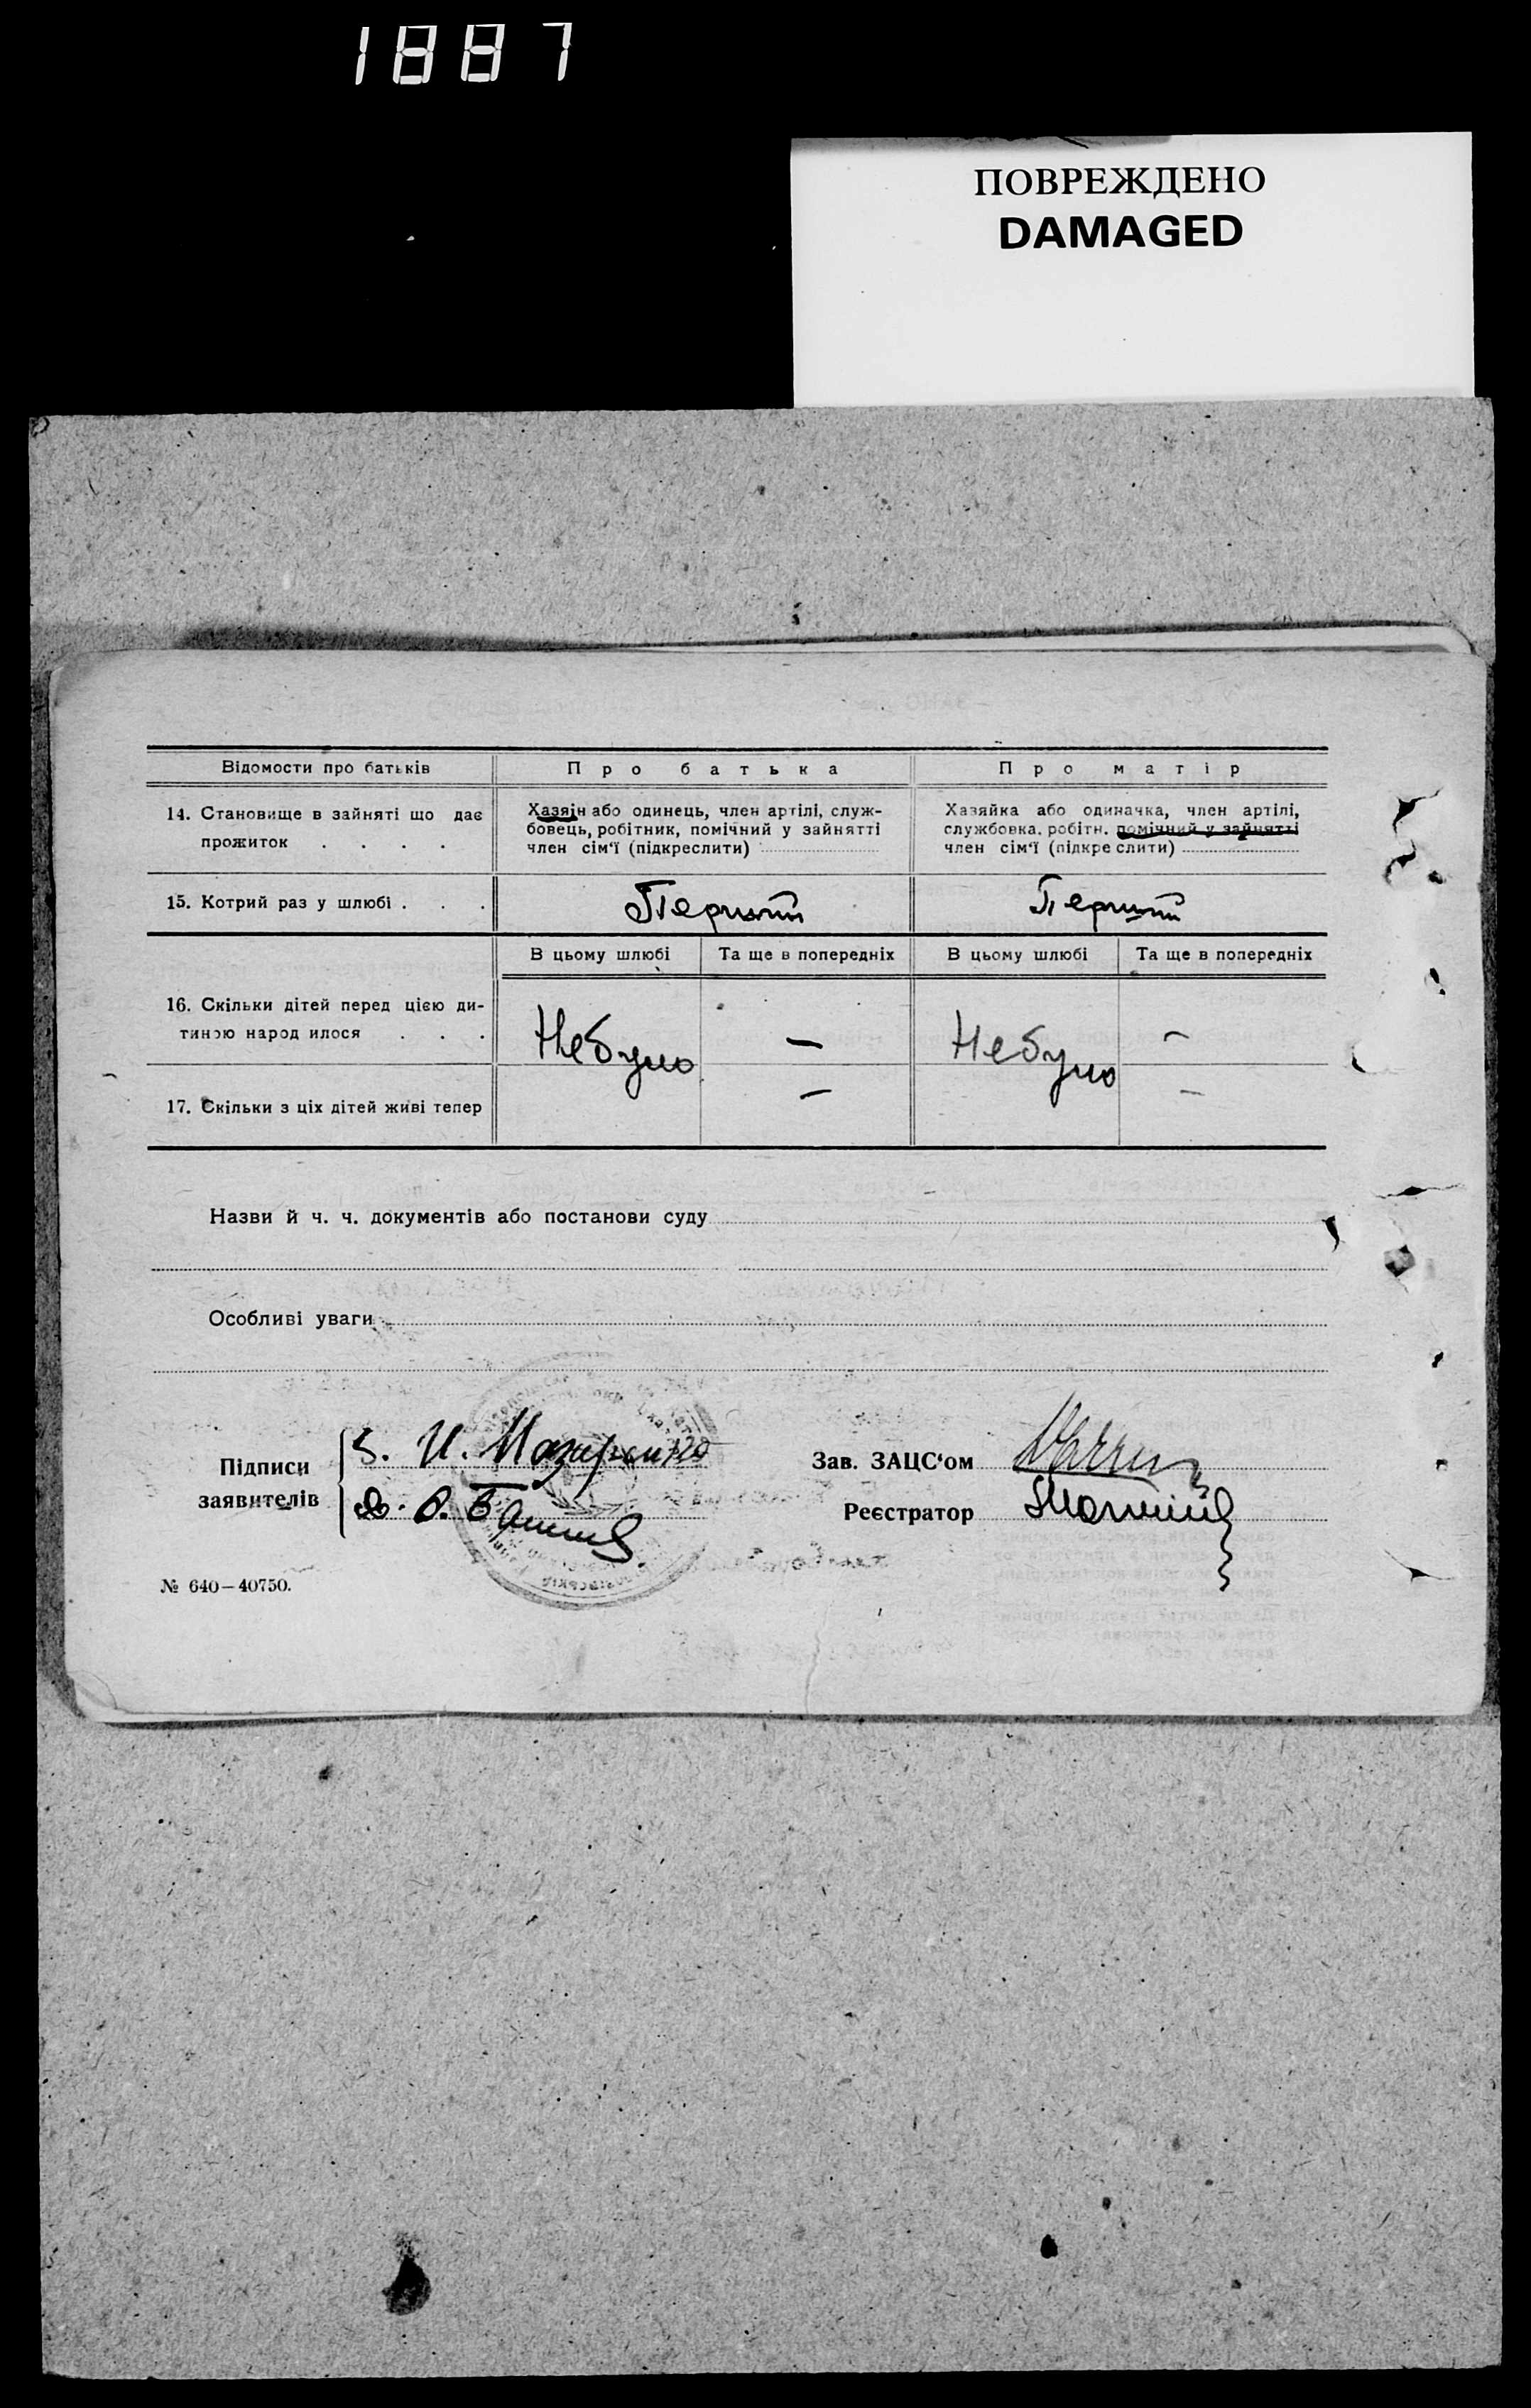 1887
ПОВРЕЖДЕНО
DAMAGED
Відомости про батьків
Про батька
Про матір
14. Становище в зайняті що дає
прожиток . . . .
Хазяїн або одинець, член артілі, служ-
бовець, робітник, помічний у зайнятті
член сім'ї (підкреслити)
Хазяйка або одиначка, член артілі,
службовка, робітн. помічний у зайнятті
член сім'ї (підкреслити)
15. Котрий раз у шлюбі . . .
Перший
Перший
В цьому шлюбі
Та ще в попередніх
В цьому шлюбі
Та ще в попередніх
16. Скільки дітей перед цією ди-
тиною народилося . . .
Небуло
—
Небуло
—
17. Скільки з ціх дітей живі тепер
—
—
Назви й ч. ч. документів або постанови суду
Особливі уваги
Підписи
заявителів
Зав. ЗАЦС'ом
Реєстратор
№ 640—40750.